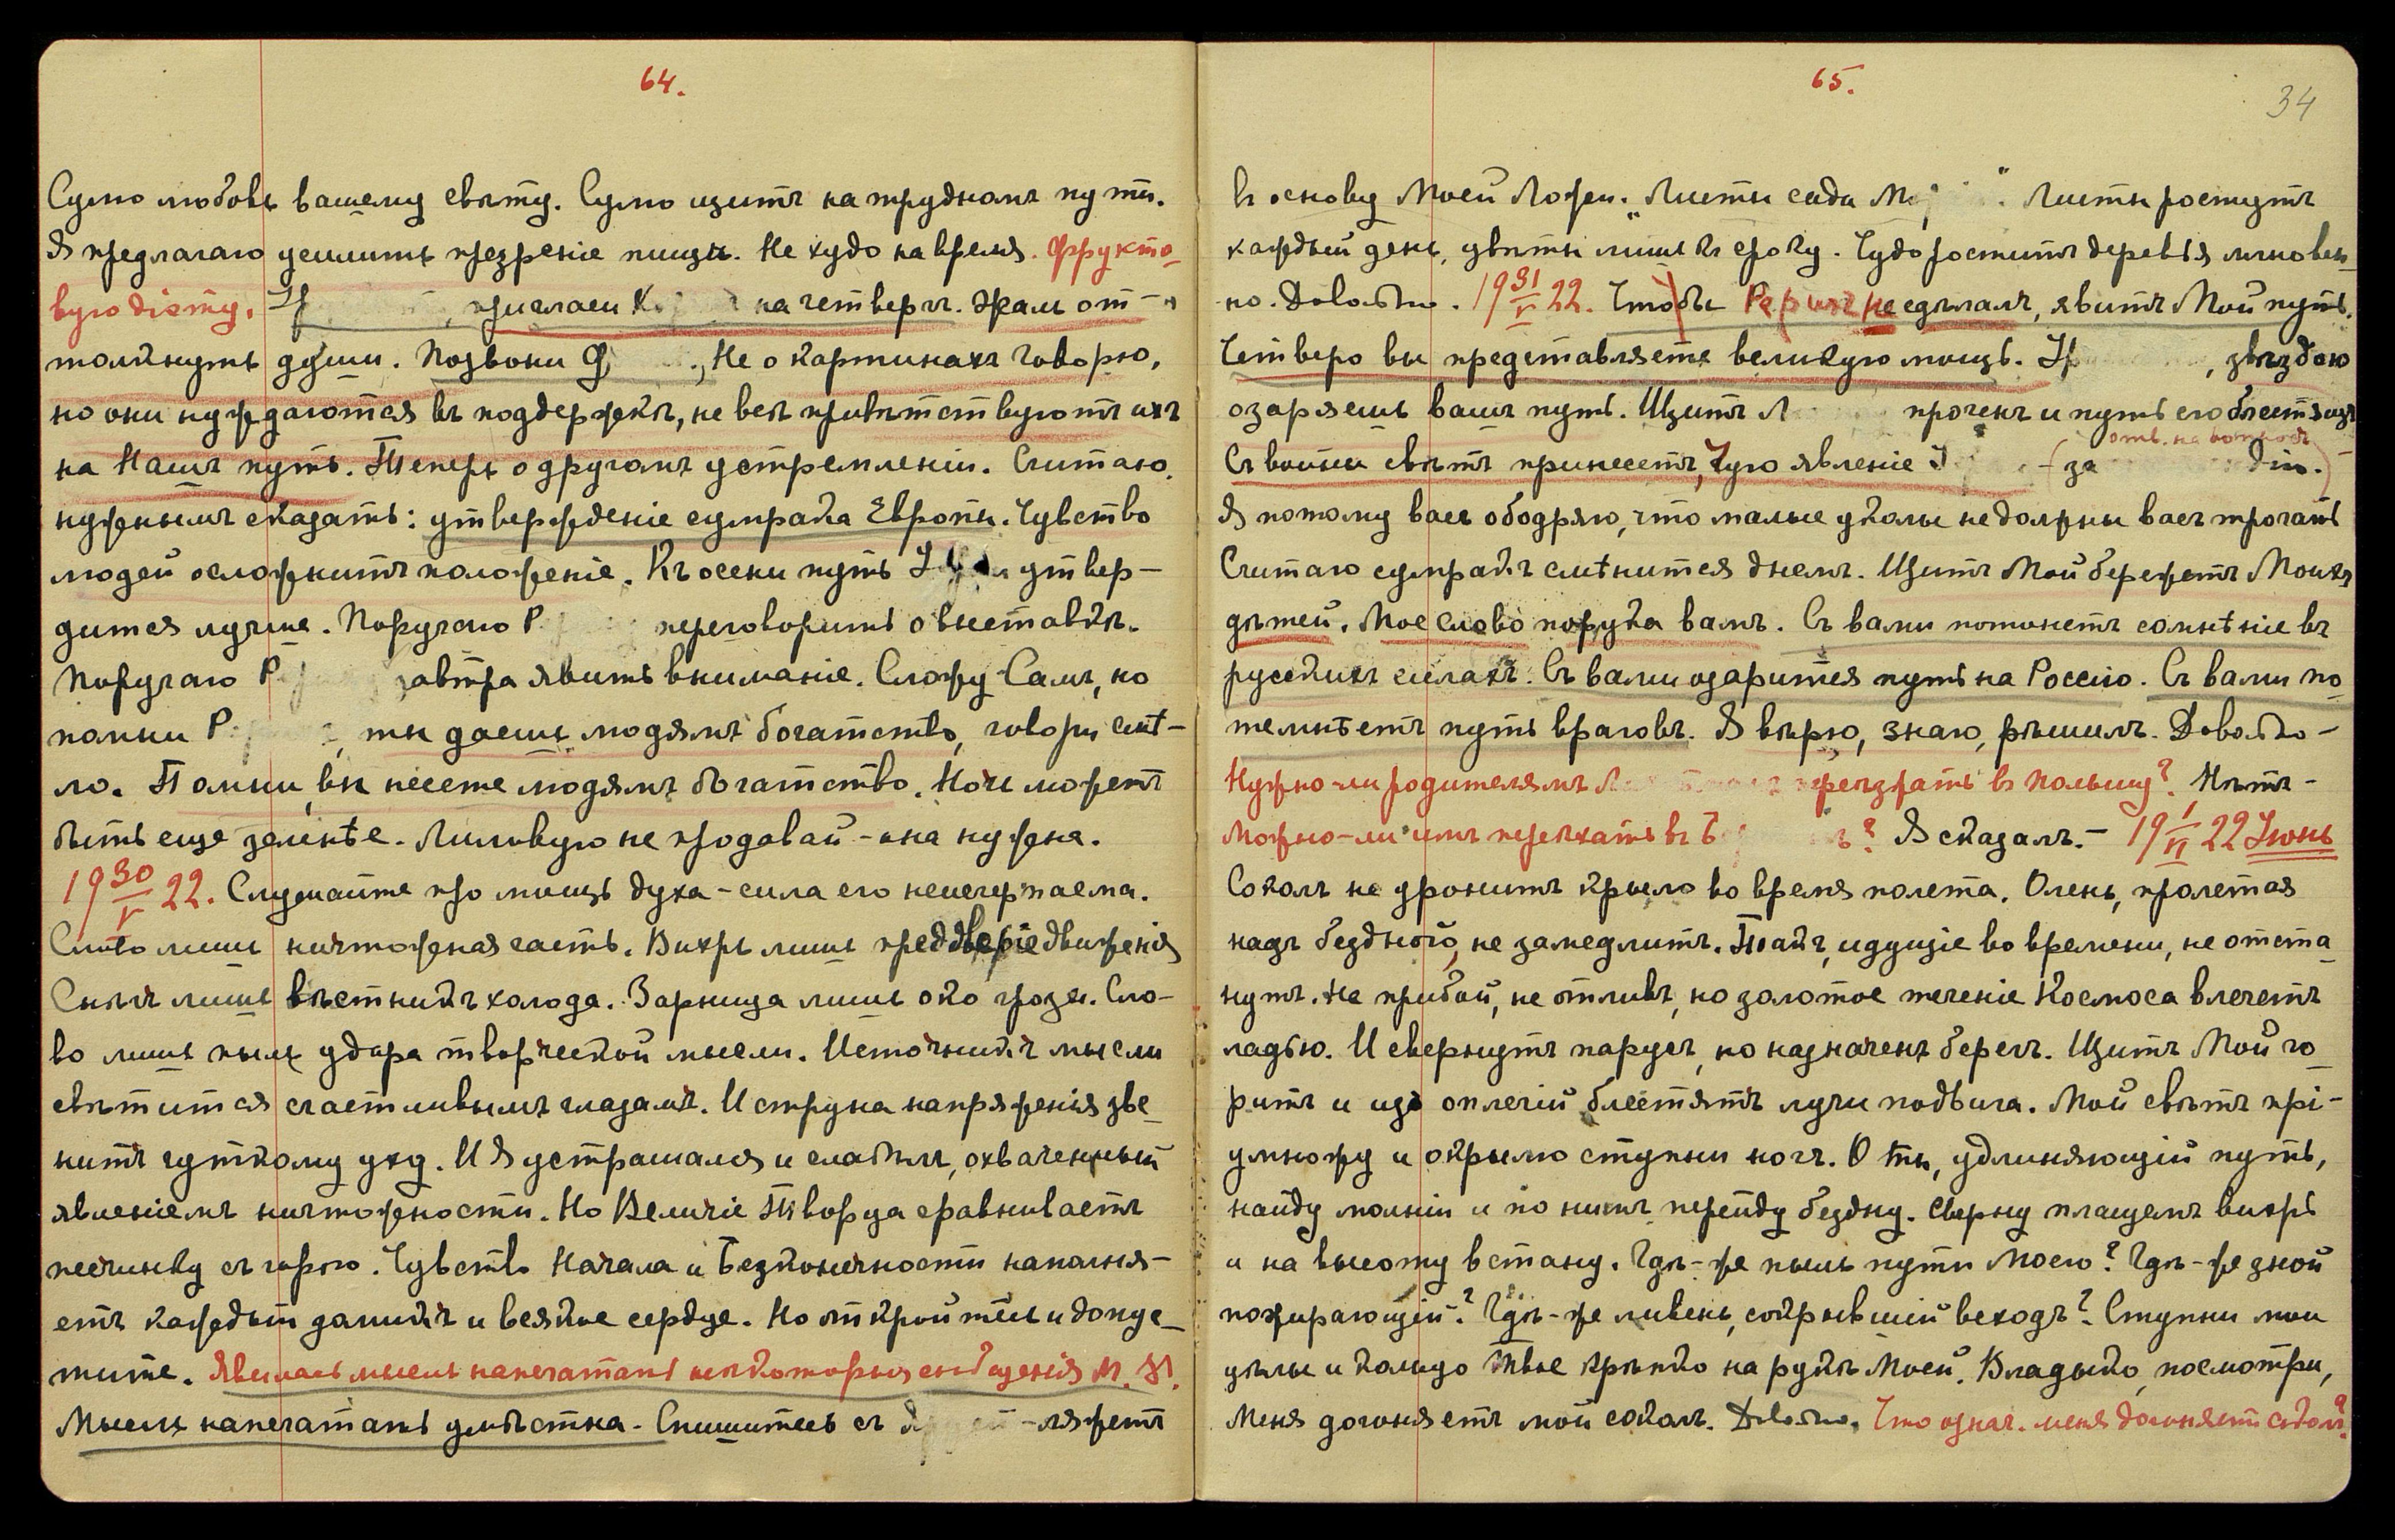 64.
Сулю любовь вашему свѣту. Сулю щитъ на трудномъ пути.
Я предлагаю усилить презрѣніе пищи. Не худо на время. Фрукто-
вую діэту. пригласи на четвергъ. Жаль от-
толкнуть души. Позвони Не о картинахъ говорю,
но они нуждаются въ поддержкѣ, не всѣ привѣтствуютъ ихъ
на Нашъ путь. Теперь о другомъ устремленіи. Считаю
нужнымъ сказать: утвержденіе сумрака Европы. Чувство
людей осложнитъ положеніе. Къ осени путь утвер-
дится лучше. Поручаю Р переговорить о выставкѣ.
Поручаю Р завтра явить вниманіе. Сложу Самъ, но
помни Р , ты даешь людямъ богатство, говори смѣ-
ло. Помни, вы несете людямъ богатство. Ночь можетъ
быть еще зеленѣе. Лиловую не продавай - она нужна.
19 30/V 22. Слушайте про мощь духа - сила его неисчерпаема.
Слово лишь ничтожная часть. Вихрь лишь преддверіе движенія
Снѣгъ лишь вѣстникъ холода. Зарница лишь око грозы. Сло-
во лишь пыль удара творческой мысли. Источникъ мысли
свѣтится счастливымъ глазамъ. И струна напряженія зве-
нитъ чуткому уху. И Я устрашался и слабѣлъ, охваченный
явленіемъ ничтожности. Но Величіе Творца сравниваетъ
песчинку съ горою. Чувство Начала и Безконечности наполня-
етъ каждый даникъ и всякое сердце. Но откройтесь и допус-
тите. Явилась мысль напечатать нѣкоторыя сообщенія М. М.
Мысль напечатать умѣстна - Спишитесь съ - ляжетъ
65.
34
въ основу Моей Ложи. "Листы сада М " Листы ростутъ
каждый день, цвѣты лишь къ сроку. Чудо роститъ деревья мгновен-
но. Довольно. 19 31/V 22. Чтобы Рерихъ не сдѣлалъ, явитъ Мой путь.
Четверо вы представляете великую мощь. , звѣздою
озаряешь вашъ путь. Щитъ Л проченъ и путь его блестящъ
отв. на вопросъ
Съ войны свѣтъ принесетъ, Чую явленіе - (за дію.)
Я потому васъ ободряю, что малые уколы не должны васъ трогать
Считаю сумракъ смѣнится днемъ. Щитъ Мой бережетъ Моихъ
дѣтей. Мое слово порука вамъ. Съ вами потонетъ сомнѣніе въ
русскихъ силахъ. Съ вами озарится путь на Россію. Съ вами по-
темнѣетъ путь враговъ. Я вѣрю, знаю, рѣшилъ. Довольно -
Нужно-ли родителямъ переѣзжать въ Польшу? Нѣтъ -
Можно-ли имъ переѣхать въ Б ? Я сказалъ. - 19 I/VI 22 Іюнь
Соколъ не уронитъ крыло во время полета. Олень, пролетая
надъ бездною, не замедлитъ. Такъ, идущіе во времени, не отста-
нутъ. Не прибой, не отливъ, но золотое теченіе Космоса влечетъ
ладью. И свернутъ парусъ, но назначенъ берегъ. Щитъ Мой го-
ритъ и изъ оплечій блестятъ лучи подвига. Мой свѣтъ прі-
умножу и окрылю ступни ногъ. О ты, удлиняющій путь,
найду молніи и по нимъ перейду бездну. Сверну плащемъ вихрь
и на высоту встану. Гдѣ-же пыль пути Моего? Гдѣ-же зной
пожирающій? Гдѣ-же ливень, сокрывшій всходъ? Ступни мои
цѣлы и кольцо Твое крѣпко на рукѣ Моей. Владыко, посмотри,
Меня догоняетъ мой соколъ. Довольно. Что означ. меня догоняетъ соколъ?